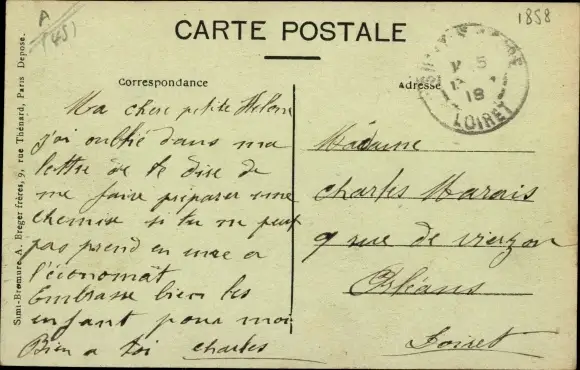 A
(45)
1858
CARTE POSTALE
Correspondance
Adresse
Ma chere petite Helene
j'ai oublié dans ma
lettre de te dire de
me faire préparer une
chemise si tu ne peut
pas prend en une a
l'économat
Embrasse bien les
enfant pour moi
Bien a toi charles
Madame
charles Marois
9 rue de vierzon
Orléans
Loiret
5
18
LOIRET
Simi-Bromure A. Breger frères, 9, rue Thénard, Paris Déposé.